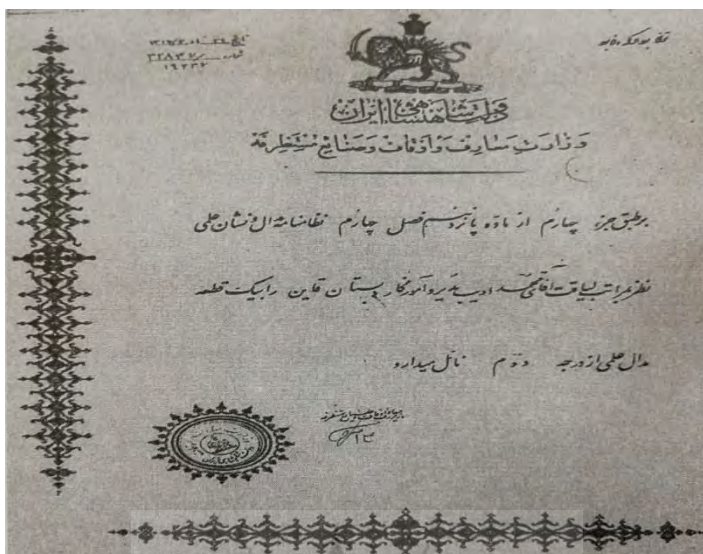 نمره ۳۲۸۳۷
۱۶۲۳۲
دولت شاهنشاهی ایران
وزارت معارف و اوقاف و صنایع مستظرفه
بر طبق جزء چهارم از ماده پانزدهم فصل چهارم نظامنامه مدال و نشان علمی
نظر بمراتب لیاقت آقای محمد ادیب مدیر و آموزگار دبستان قاین را بیک قطعه
مدال علمی از درجه دوم نائل میدارد